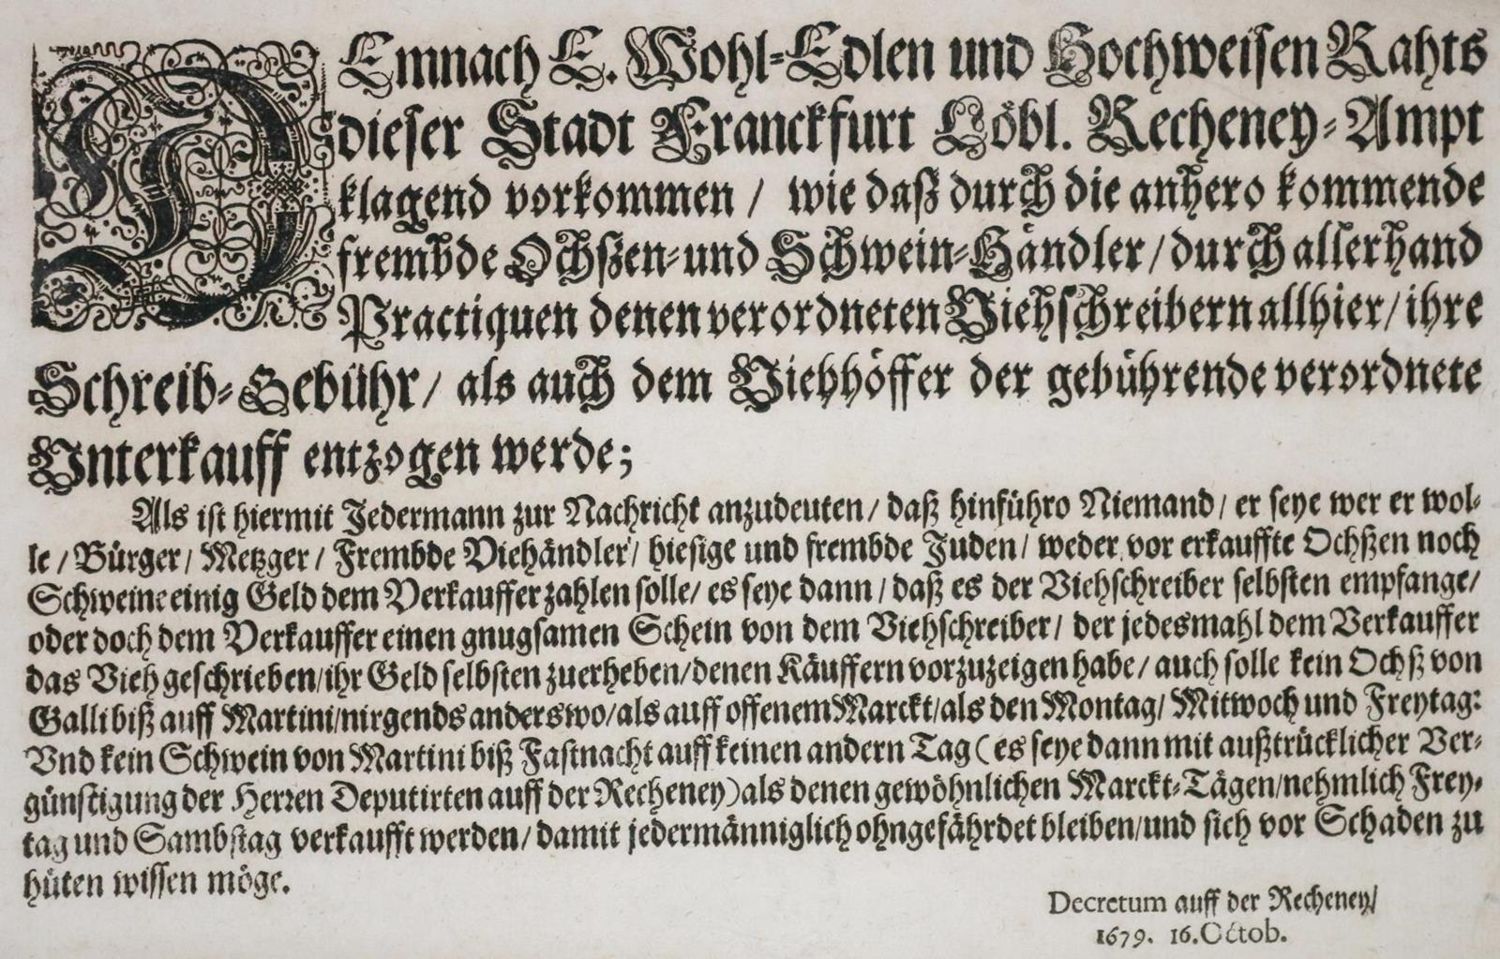 DEmnach E. Wohl-Edlen und Hochweisen Rahts
dieser Stadt Franckfurt Löbl. Recheney-Ampt
klagend vorkommen / wie daß durch die anhero kommende
frembde Ochßen-und Schwein-Händler / durch allerhand
Practiquen denen verordneten Viehschreibern allhier / ihre
Schreib-Gebühr / als auch dem Viehhöffer der gebührende verordnete
Unterkauff entzogen werde;
Als ist hiermit Jedermann zur Nachricht anzudeuten / daß hinführo Niemand / er seye wer er wol-
le / Bürger / Metzger / Frembde Viehändler / hiesige und frembde Juden / weder vor erkauffte Ochßen noch
Schweine einig Geld dem Verkauffer zahlen solle / es seye dann / daß es der Viehschreiber selbsten empfange /
oder doch dem Verkauffer einen gnugsamen Schein von dem Viehschreiber / der jedesmahl dem Verkauffer
das Vieh geschrieben / ihr Geld selbsten zuerheben / denen Käuffern vorzuzeigen habe / auch solle kein Ochß von
Galli biß auff Martini / nirgends anderswo / als auff offenem Marckt / als den Montag / Mittwoch und Freytag:
Vnd kein Schwein von Martini biß Fastnacht auff keinen andern Tag (es seye dann mit außtrücklicher Ver-
günstigung der Herren Deputirten auff der Recheney) als denen gewöhnlichen Marckt-Tägen / nehmlich Frey-
tag und Sambstag verkaufft werden / damit jedermänniglich ohngefährdet bleiben / und sich vor Schaden zu
hüten wissen möge.
Decretum auff der Recheney /
1679. 16. Octob.